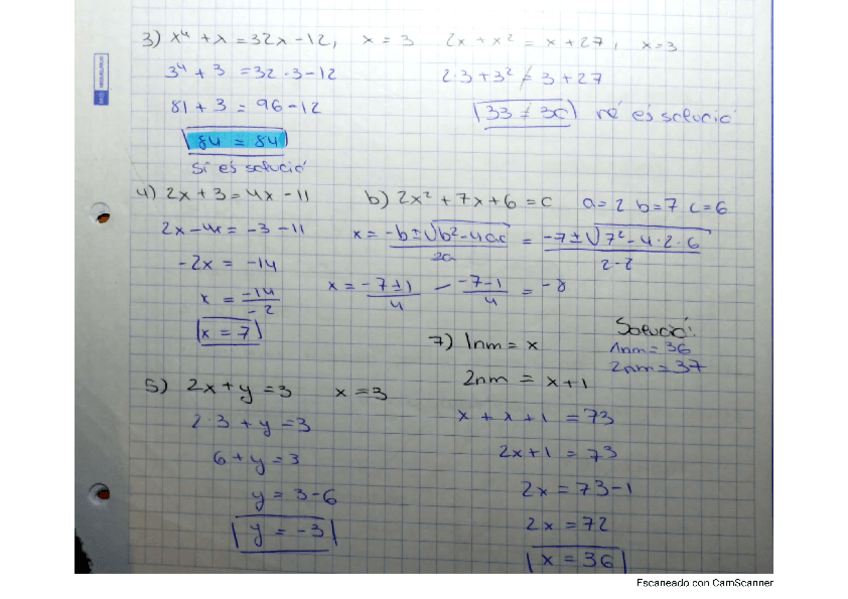 3) x⁴ + x = 32x - 12, x = 3
3⁴ + 3 = 32 · 3 - 12
81 + 3 = 96 - 12
84 = 84
Sí és solució
2x + x² = x + 27, x = 3
2·3 + 3² ≠ 3 + 27
33 ≠ 30 no és solució
4) 2x + 3 = 4x - 11
2x - 4x = -3 - 11
-2x = -14
x = -14/-2
x = 7
b) 2x² + 7x + 6 = c a = 2 b = 7 c = 6
x = -b ± √b² - 4ac / 2a = -7 ± √7² - 4 · 2 · 6 / 2 - 2
x = -7 ± 1 / 4 - -7 - 1 / 4 = -8
5) 2x + y = 3 x = 3
2·3 + y = 3
6 + y = 3
y = 3 - 6
y = -3
7) 1nm = x
2nm = x + 1
x + x + 1 = 73
2x + 1 = 73
2x = 73 - 1
2x = 72
x = 36
Solució:
1nm = 36
2nm = 37
Escaneado con CamScanner